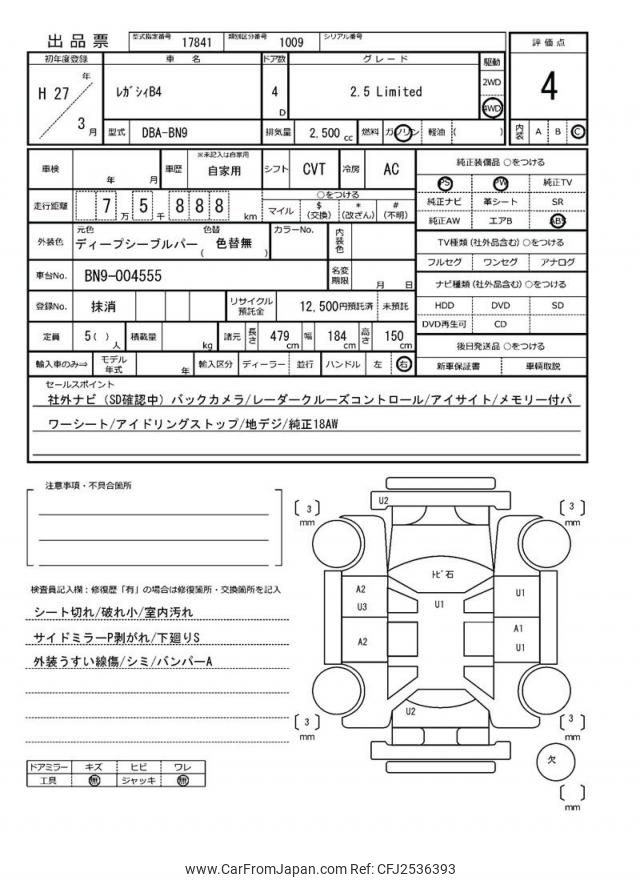 出品票
型式指定番号 17841 類別区分番号 1009 シリアル番号
初年度登録 車名 ドア数 グレード 駆動 評価点
H 27 年 3 月 レガシィB4 4 D 2.5 Limited 2WD 4WD 4
型式 DBA-BN9 排気量 2,500 cc 燃料 ガソリン 軽油 ( ) 内装 A B C
車検 年 月 車歴 ※未記入は自家用 自家用 シフト CVT 冷房 AC
純正装備品 ○をつける
PS PW 純正TV
走行距離 7 万 5 千 8 8 8 km
○をつける
マイル $ (交換) * (改ざん) # (不明)
純正ナビ 革シート SR
純正AW エアB ABS
外装色 元色 ディープシーブルパー 色替 ( 色替無 ) カラーNo. 内装色
TV種類 (社外品含む) ○をつける
フルセグ ワンセグ アナログ
車台No. BN9-004555 名変期限 月 日
ナビ種類 (社外品含む) ○をつける
HDD DVD SD
DVD再生可 CD
登録No. 抹消 リサイクル預託金 12,500円預託済 未預託
定員 5( ) 人 積載量 kg 諸元 長さ 479 cm 幅 184 cm 高さ 150 cm
後日発送品 ○をつける
新車保証書 車輌取説
輸入車のみ⇒ モデル年式 年 輸入区分 ディーラー 並行 ハンドル 左 右
セールスポイント
社外ナビ（SD確認中）バックカメラ/レーダークルーズコントロール/アイサイト/メモリー付パ
ワーシート/アイドリングストップ/地デジ/純正18AW
注意事項・不具合箇所
検査員記入欄：修復歴「有」の場合は修復箇所・交換箇所を記入
シート切れ/破れ小/室内汚れ
サイドミラーP剥がれ/下廻りS
外装うすい線傷/シミ/バンパーA
ドアミラー キズ ヒビ ワレ
工具 無 ジャッキ 無
U2
3 mm
3 mm
トビ石
A2
U3
U1
U1
A2
A1
U1
U2
3 mm
3 mm
欠
mm
www.CarFromJapan.com Ref: CFJ2536393